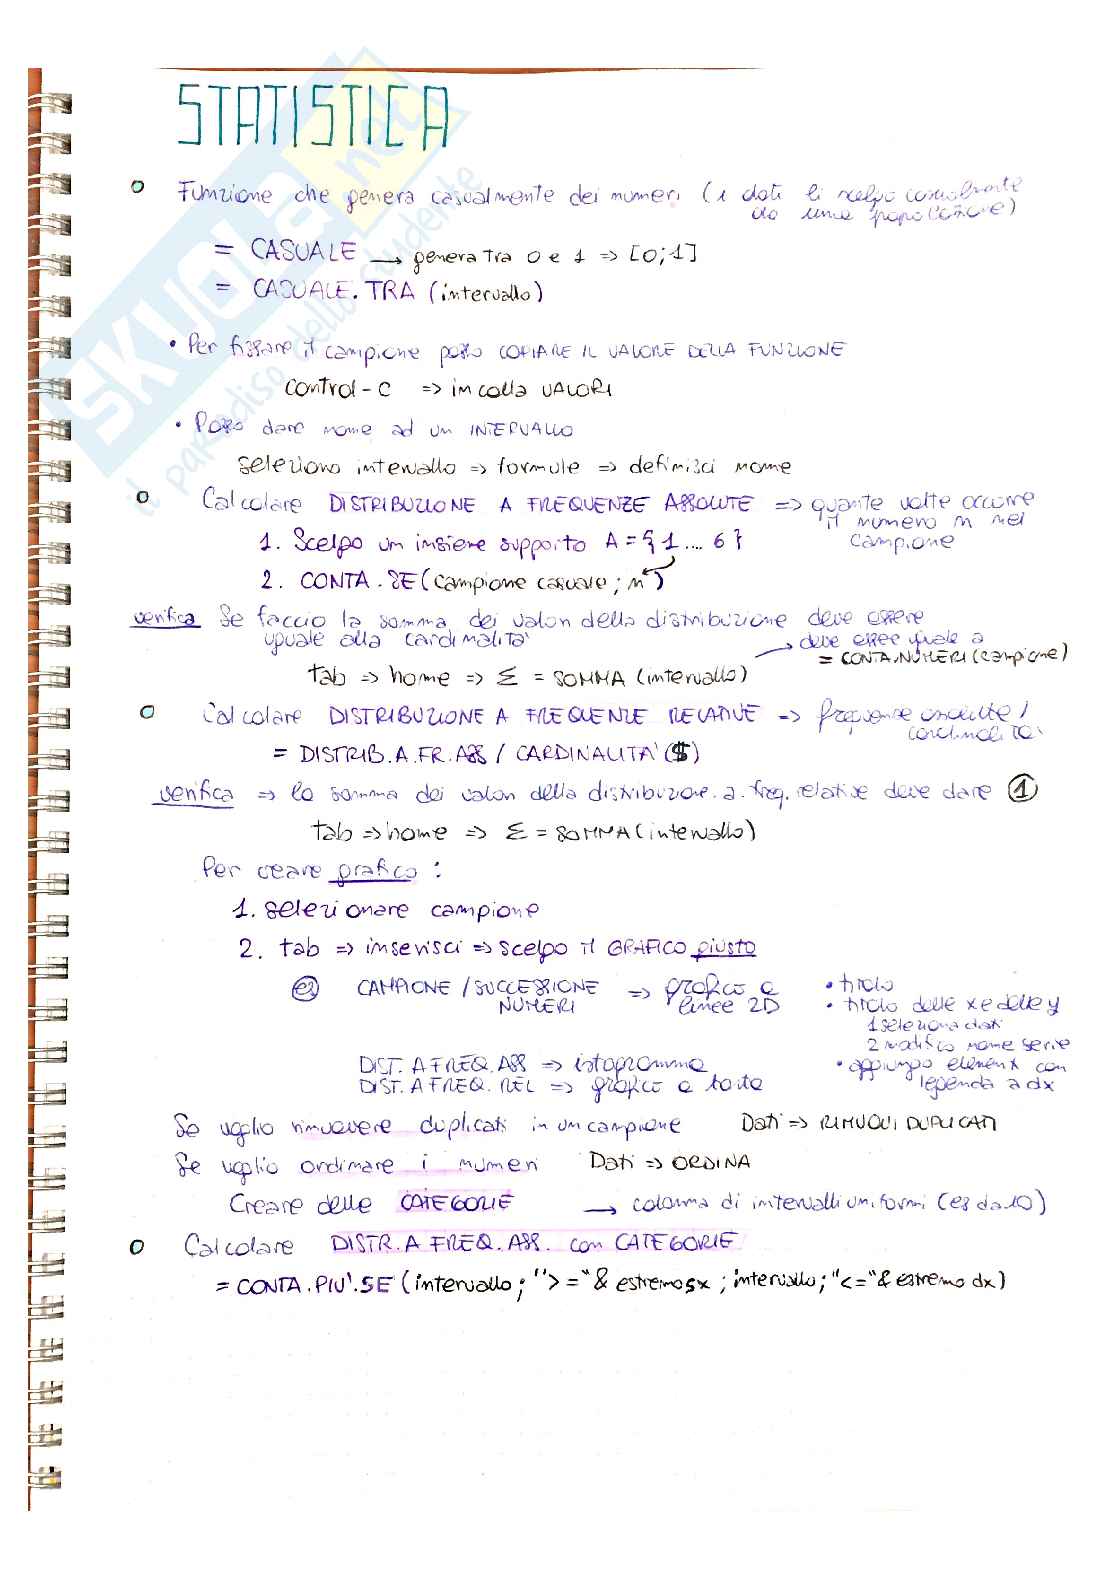 STATISTICA
Funzione che genera casualmente dei numeri (i dati li scelgo casualmente
da una popolazione)
= CASUALE → genera tra 0 e 1 => [0;1]
= CASUALE.TRA (intervallo)
• Per fissare il campione posso COPIARE IL VALORE DELLA FUNZIONE
control-c => incolla VALORI
• Posso dare nome ad un INTERVALLO
seleziono intervallo => formule => definisci nome
Calcolare DISTRIBUZIONE A FREQUENZE ASSOLUTE => quante volte occorre
il numero n nel
campione
1. Scelgo un insieme supporto A = {1 ... 6}
2. CONTA.SE (campione casuale ; n)
verifica Se faccio la somma dei valori della distribuzione deve essere
uguale alla cardinalità
→ deve essere uguale a
= CONTA.NUMERI (campione)
tab => home => Σ = SOMMA (intervallo)
Calcolare DISTRIBUZIONE A FREQUENZE RELATIVE => frequenze assolute /
cardinalità
= DISTRIB.A.FR.ASS / CARDINALITA' ($)
verifica => la somma dei valori della distribuzione.a.freq.relative deve dare 1
tab => home => Σ = SOMMA (intervallo)
Per creare grafico :
1. selezionare campione
2. tab => inserisci => scelgo il GRAFICO giusto
es CAMPIONE / SUCCESSIONE NUMERI => grafico a linee 2D
• titolo
• titolo delle x e delle y
1 seleziona dati
2 modifico nome serie
• aggiungo elementi con
legenda a dx
DIST. A FREQ. ASS => istogramma
DIST. A FREQ. REL => grafico a torta
Se voglio rimuovere duplicati in un campione Dati => RIMUOVI DUPLICATI
Se voglio ordinare i numeri Dati => ORDINA
Creare delle CATEGORIE → colonna di intervalli uniformi (es da 10)
Calcolare DISTR. A FREQ. ASS. con CATEGORIE
= CONTA.PIU'.SE (intervallo ; ">=" & estremo sx ; intervallo ; "<=" & estremo dx)
SKUOLA.net
il paradiso dello studente